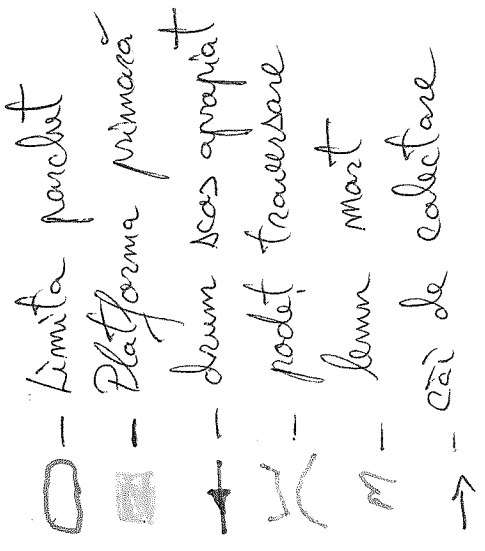 - Limita parchet
- Platforma primară
- drum scos apropiat
- podeț traversare
- lemn mort
- căi de colectare